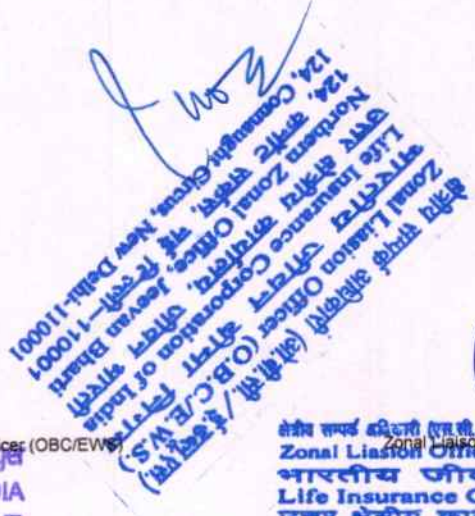 क्षेत्रीय सम्पर्क अधिकारी (ओ.बी.सी. / ई.डब्ल्यू.एस.)
Zonal Liasion Officer (O.B.C./E.W.S.)
भारतीय जीवन बीमा निगम
Life Insurance Corporation of India
उत्तर क्षेत्रीय कार्यालय, जीवन भारती
Northern Zonal Office, Jeevan Bharti
124, कनॉट सर्कस, नई दिल्ली-110001
124, Connaught Circus, New Delhi-110001
cer (OBC/EWS)
IA
क्षेत्रीय सम्पर्क अधिकारी (एस.सी.
Zonal Liaiso
Zonal Liasion Offi
भारतीय जीव
Life Insurance C